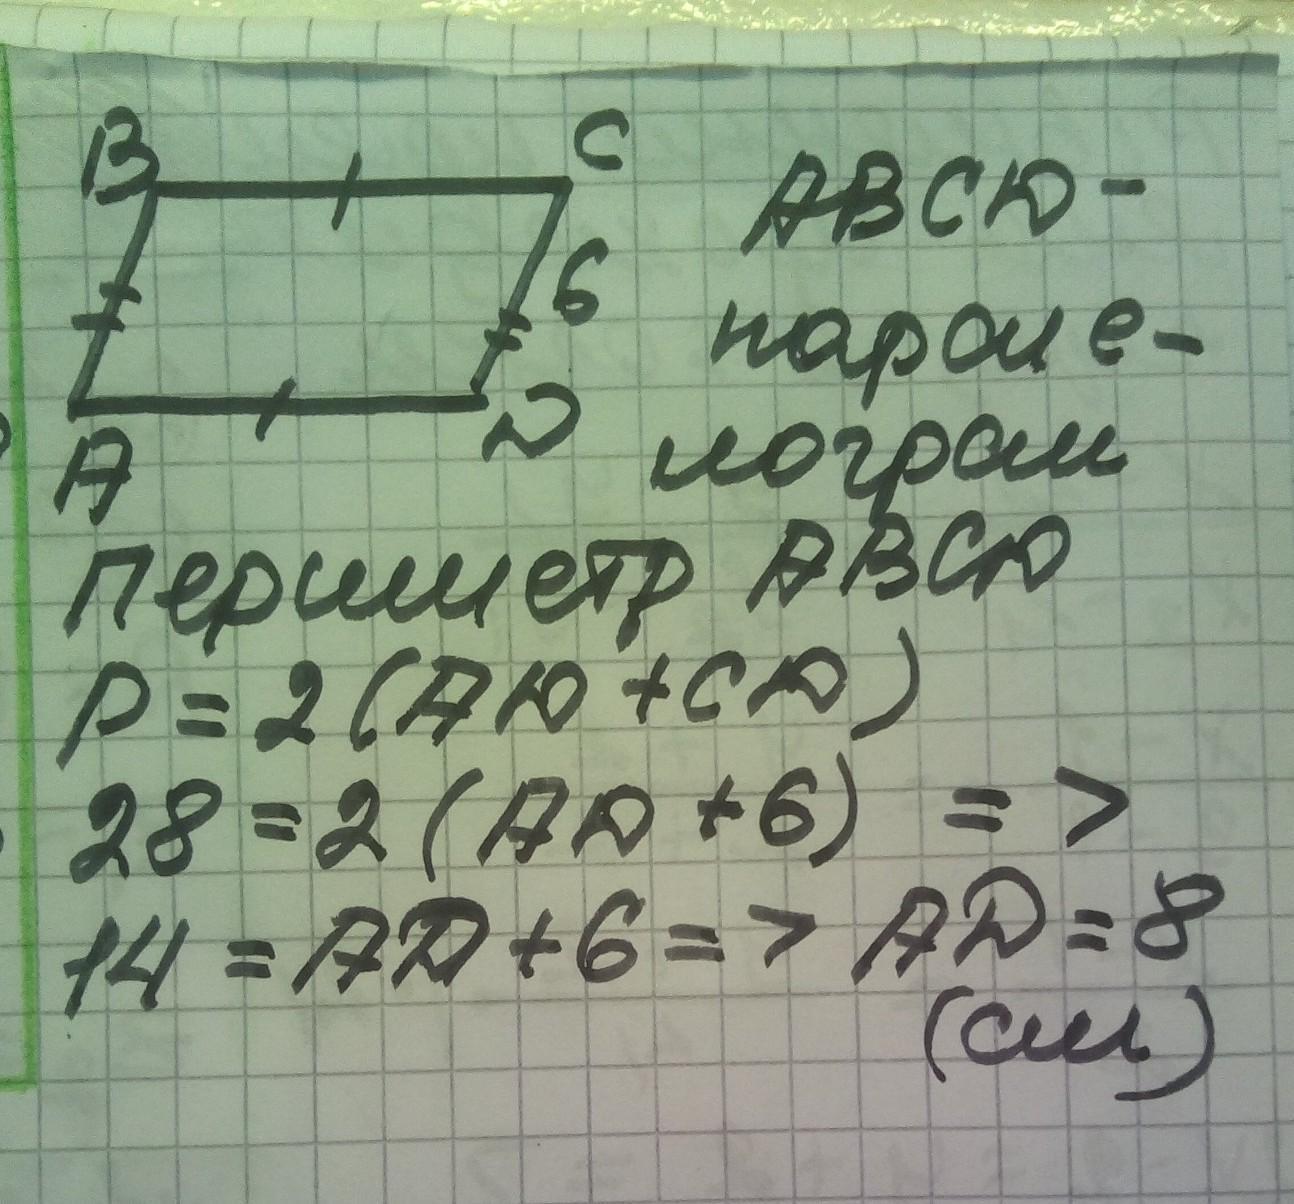 B
C
6
A
D
ABCD -
парале-
лограм
Периметр ABCD
P = 2 (AD + CD)
28 = 2 (AD + 6) =>
14 = AD + 6 => AD = 8
(см)